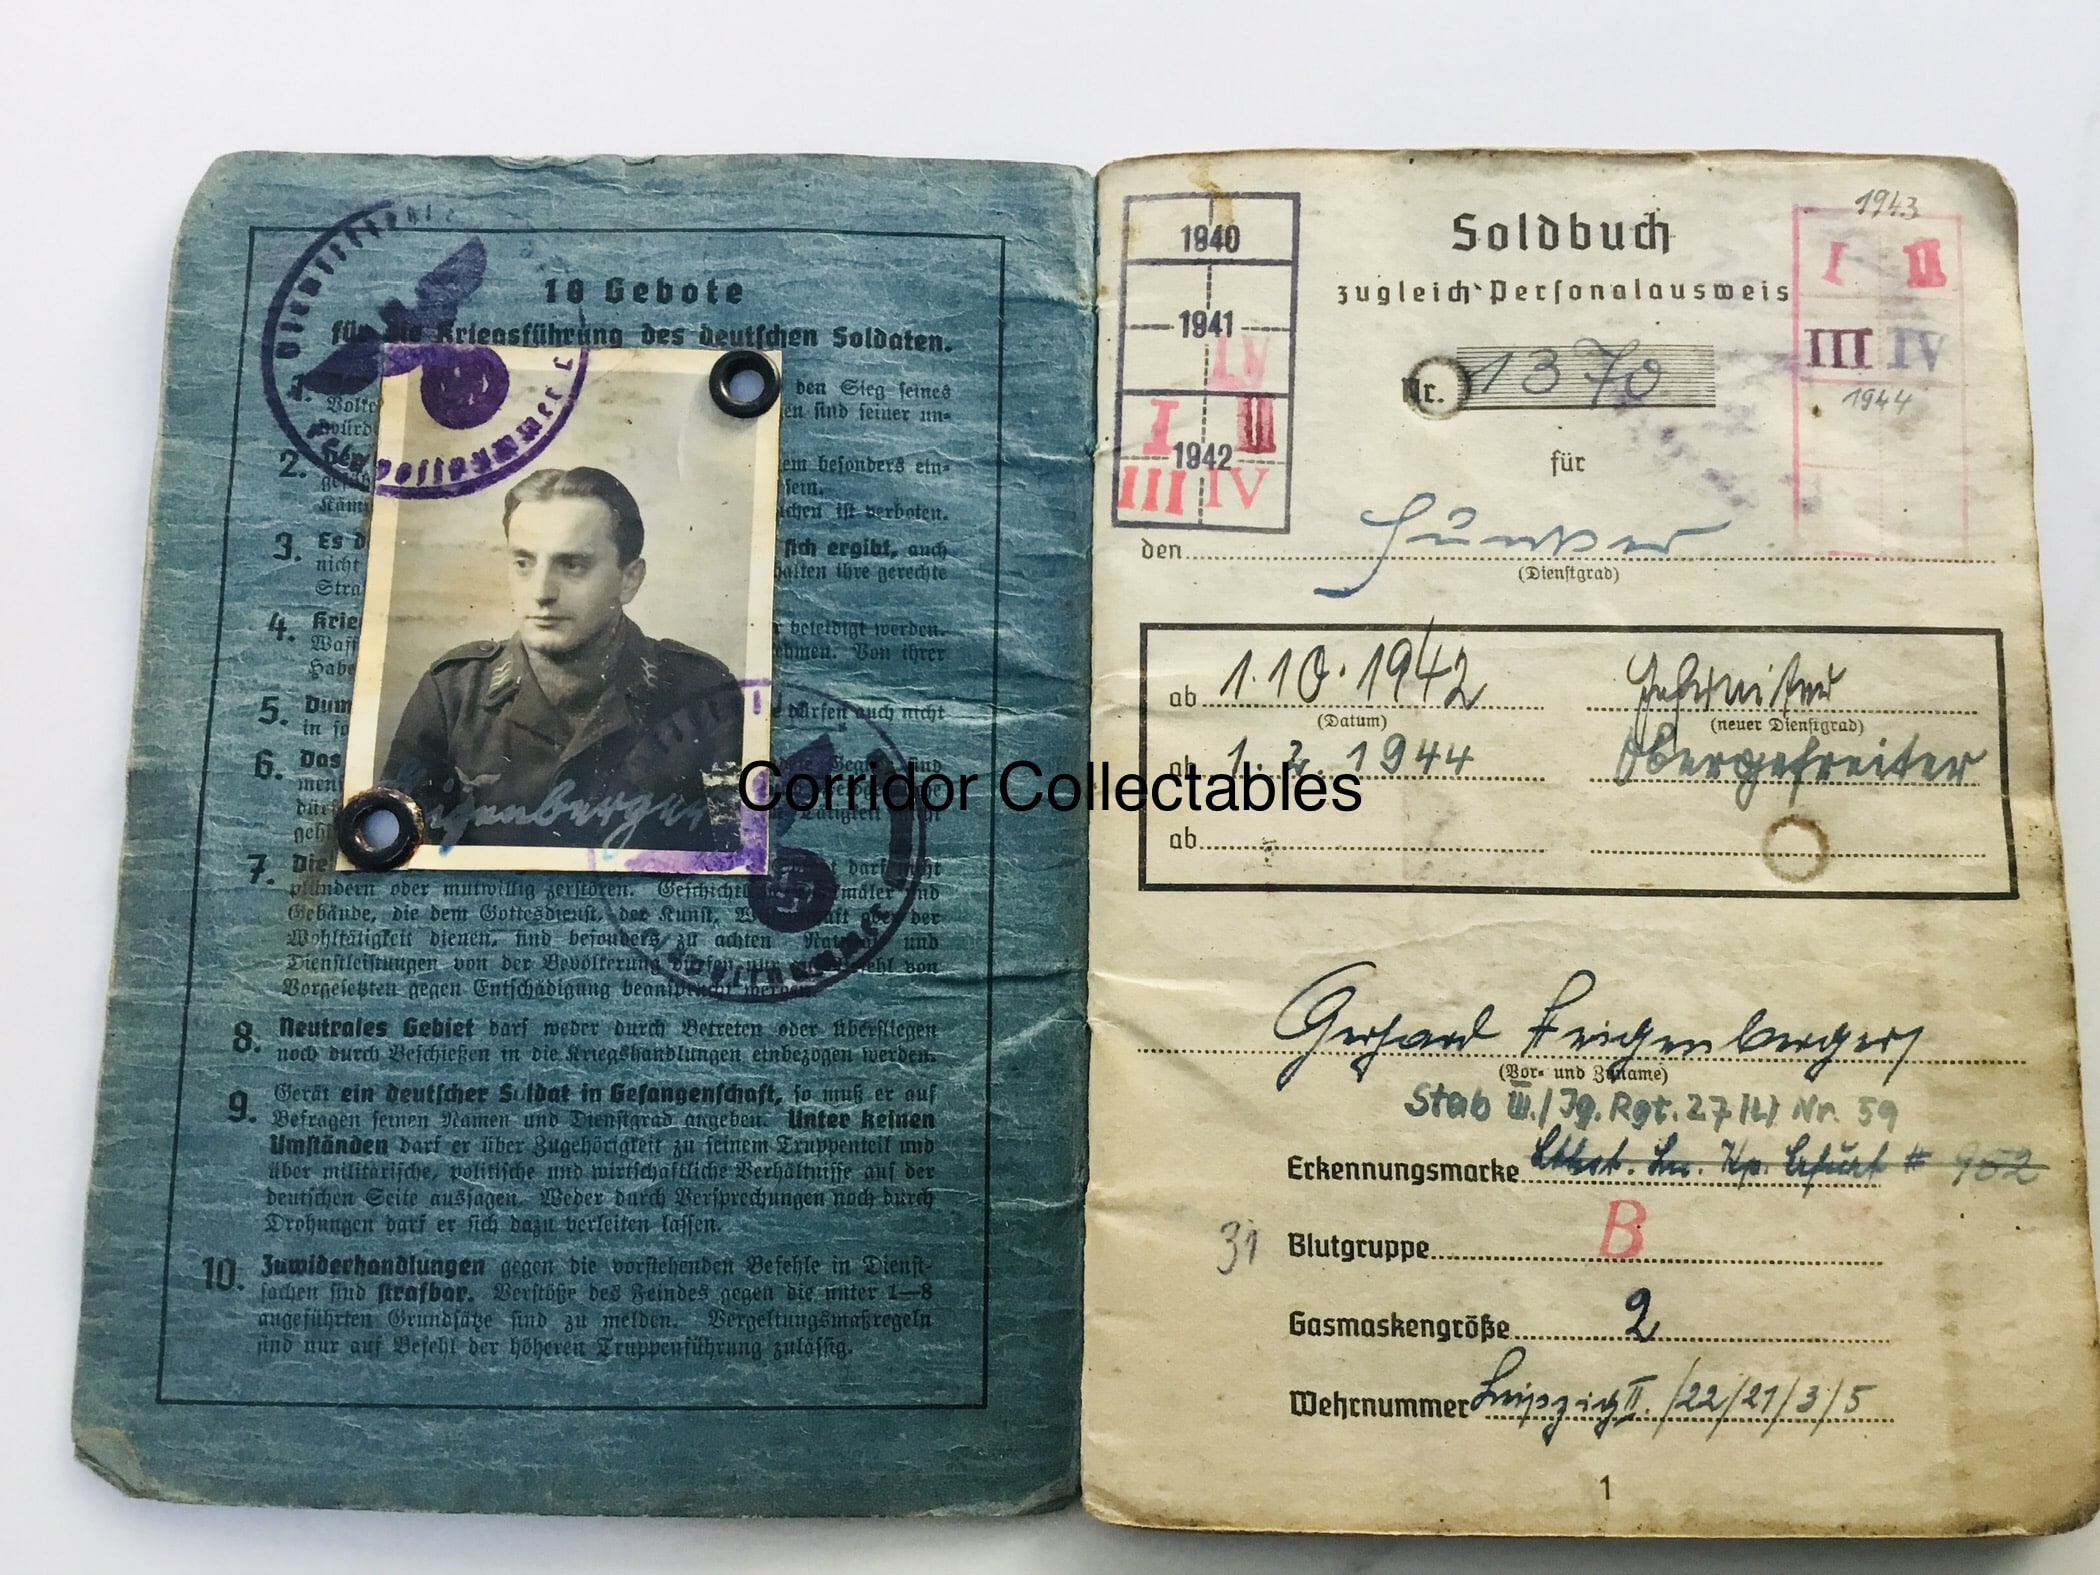 10 Gebote
für die Kriegsführung des deutschen Soldaten.
1.
den Sieg seines
Volke
en sind seiner un-
würd
2.
em besonders ein-
sein.
Kämp
chen ist verboten.
3. Es d
sich ergibt, auch
nicht
halten ihre gerechte
Stra
4. Krie
beleidigt werden.
Waff
ehmen. Von ihrer
Habe
5. Dum
e dürfen auch nicht
in so
6. Das
sind
men
dürf
Tätigkeit nicht
geh
7. Die
darf nicht
plündern oder mutwillig zerstören.
Gebäude, die dem Gottesdienst, der Kunst,
oder der
Wohltätigkeit dienen, sind besonders zu achten
und
Dienstleistungen von der Bevölkerung dürfen nur
von
Vorgesetzten gegen Entschädigung beansprucht werden.
8. Neutrales Gebiet darf weder durch Betreten oder Überfliegen
noch durch Beschießen in die Kriegshandlungen einbezogen werden.
9. Gerät ein deutscher Soldat in Gefangenschaft, so muß er auf
Befragen seinen Namen und Dienstgrad angeben. Unter keinen
Umständen darf er über Zugehörigkeit zu seinem Truppenteil und
über militärische, politische und wirtschaftliche Verhältnisse auf der
deutschen Seite aussagen. Weder durch Versprechungen noch durch
Drohungen darf er sich dazu verleiten lassen.
10. Zuwiderhandlungen gegen die vorstehenden Befehle in Dienst-
sachen sind strafbar. Verstöße des Feindes gegen die unter 1—8
angeführten Grundsätze sind zu melden. Vergeltungsmaßregeln
sind nur auf Befehl der höheren Truppenführung zulässig.
Feigenberger
Corridor Collectables
1940
1941
IV
I II
1942
III IV
Soldbuch
zugleich Personalausweis
Nr. 1370
für
1943
I II
III IV
1944
den Funker
(Dienstgrad)
ab 1.10.1942 Gefreiter
(Datum) (neuer Dienstgrad)
ab 1.2.1944 Obergefreiter
ab
Gerhard Feigenberger
(Vor- und Zuname)
Stab III./Jg. Rgt. 27 (L) Nr. 59
Erkennungsmarke Ln. Kp. Erfurt # 952
31 Blutgruppe B
Gasmaskengröße 2
Wehrnummer Leipzig II./22/21/3/5
1